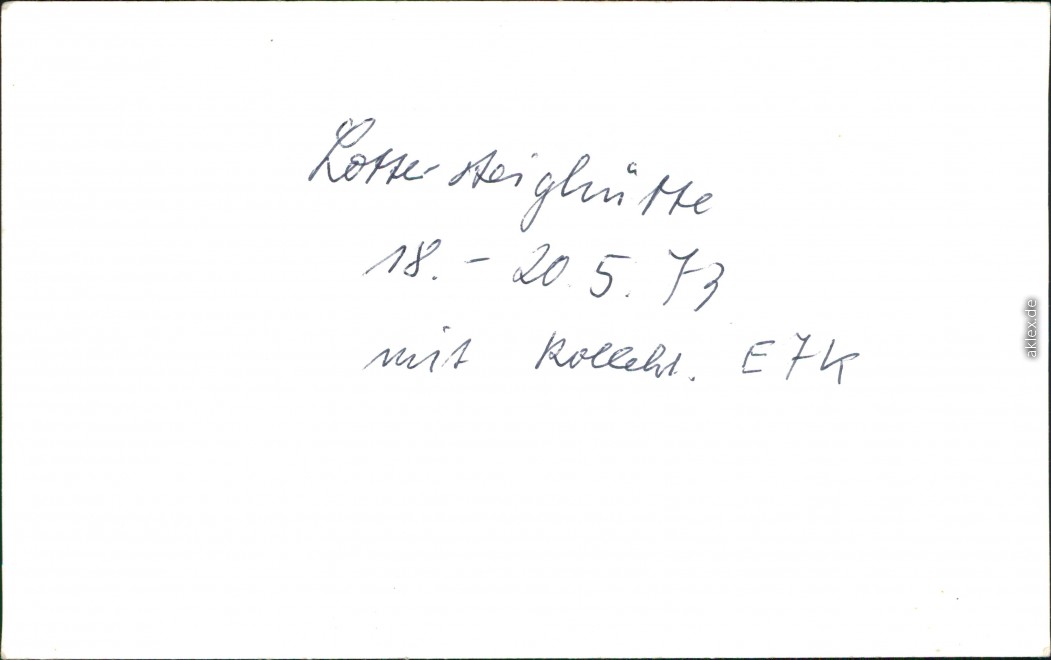 Lottersteighütte
18. - 20. 5. 73
mit Kollekt. E7K
aklex.de